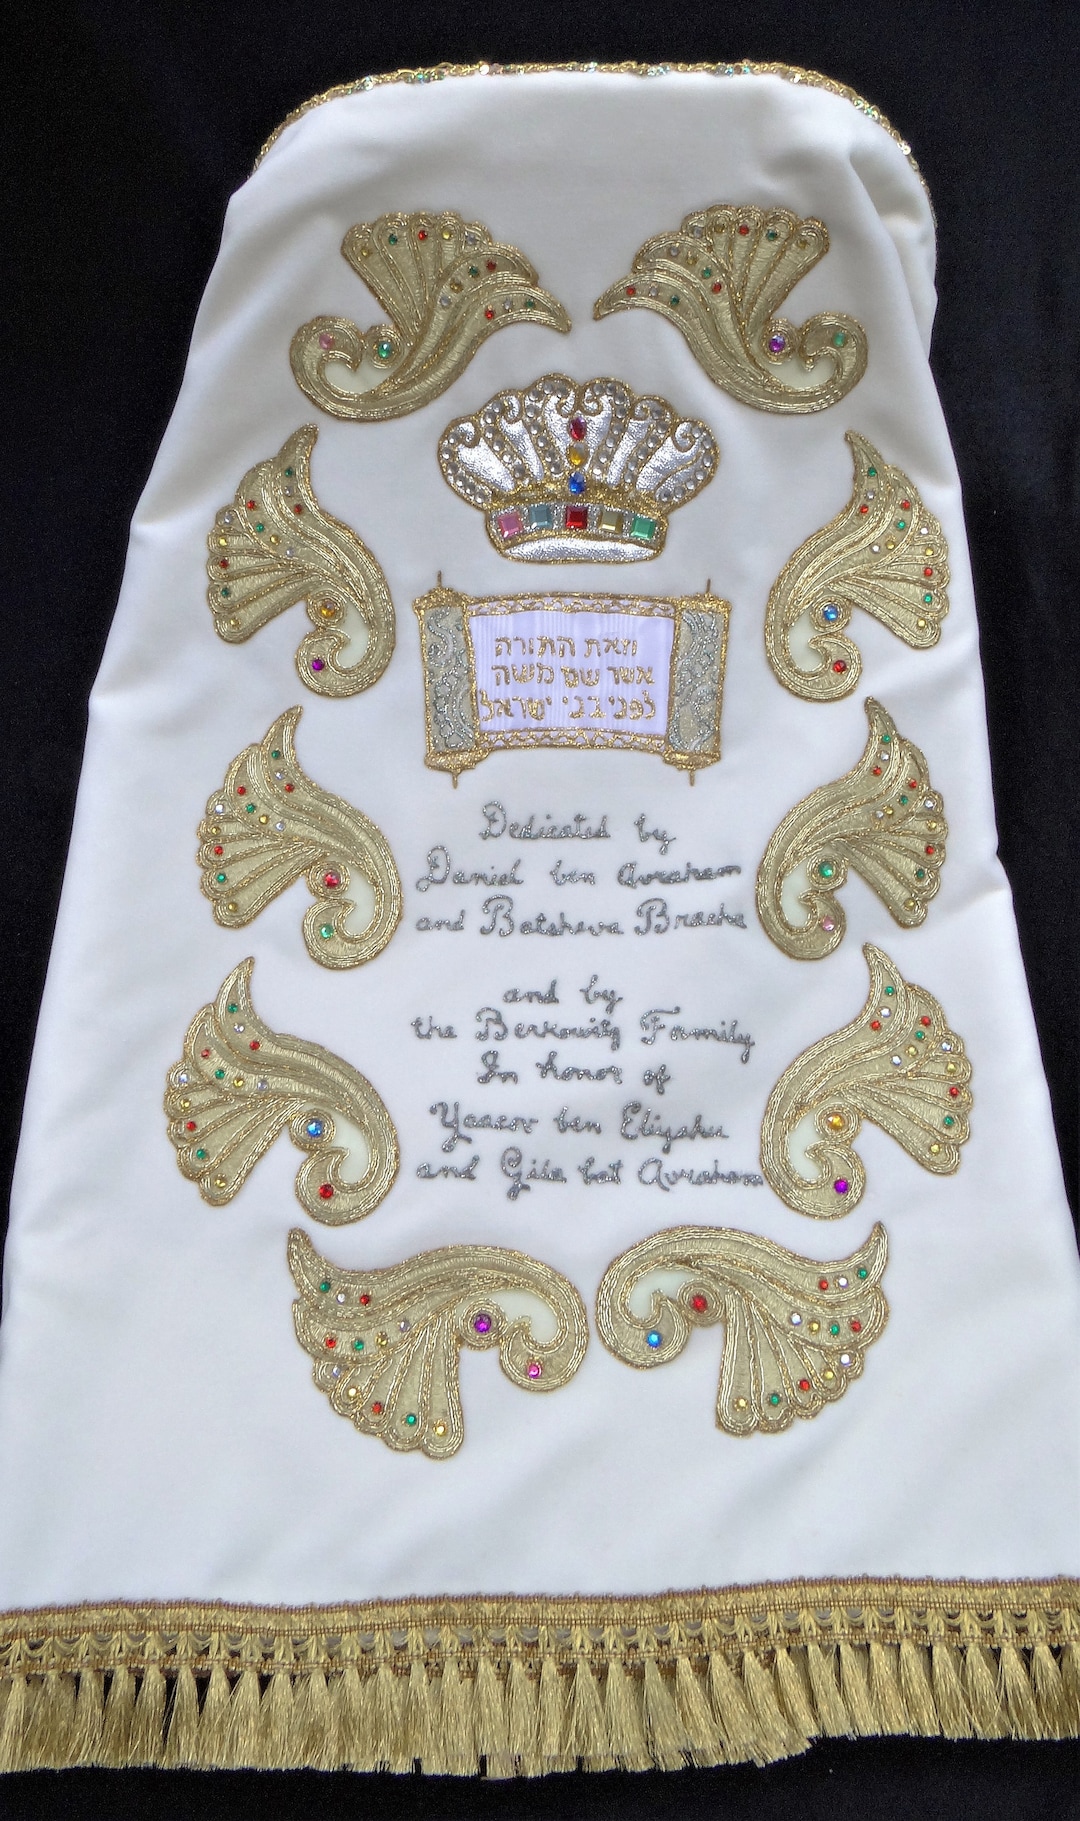 וזאת התורה
אשר שם משה
לפני בני ישראל
Dedicated by
Daniel ben Avraham
and Batsheva Bracha
and by
the Berkowitz Family
In honor of
Yaacov ben Eliyahu
and Gila bat Avraham